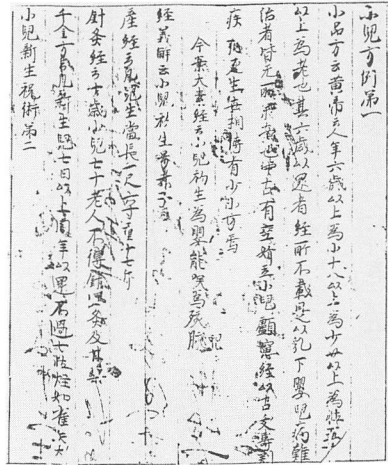 小兒方例第一
小品方云黄帝云人年六歳以上為小十八以上為少廿以上為壮
以上為老也其六歳以還者經所不載是以乳下嬰兒病難
治者皆无所承據也中古有巫妨立小兒顱囟經以占夭壽
疾病死生世相傳有少小方焉
今案大素經云小兒初生為嬰能咲為孩
經義解云小兒初生
産經云凡兒生當長一尺六寸重十七斤
針灸經云十歳小兒七十老人不得
千金方云凡新生兒七日以上周年以還不過七壮炷如雀矢大
小兒新生祝術第二